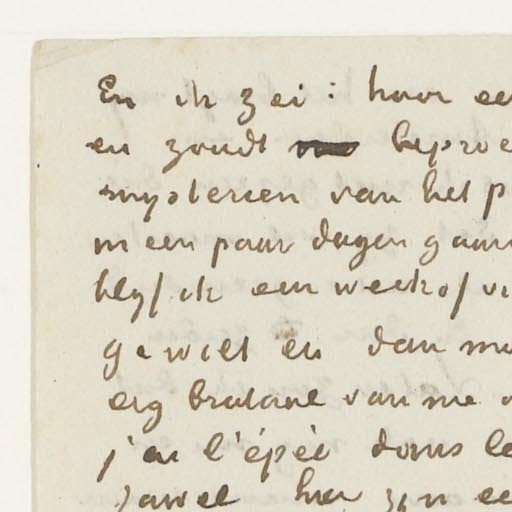 En ik zei: hoor ee
en zoudt beproe
mysterien van het p
in een paar dagen gaan
blyf ik een week of vi
ge wilt en dan mo
erg brutaal van me
j'ai l'épée dans le
zijn ee